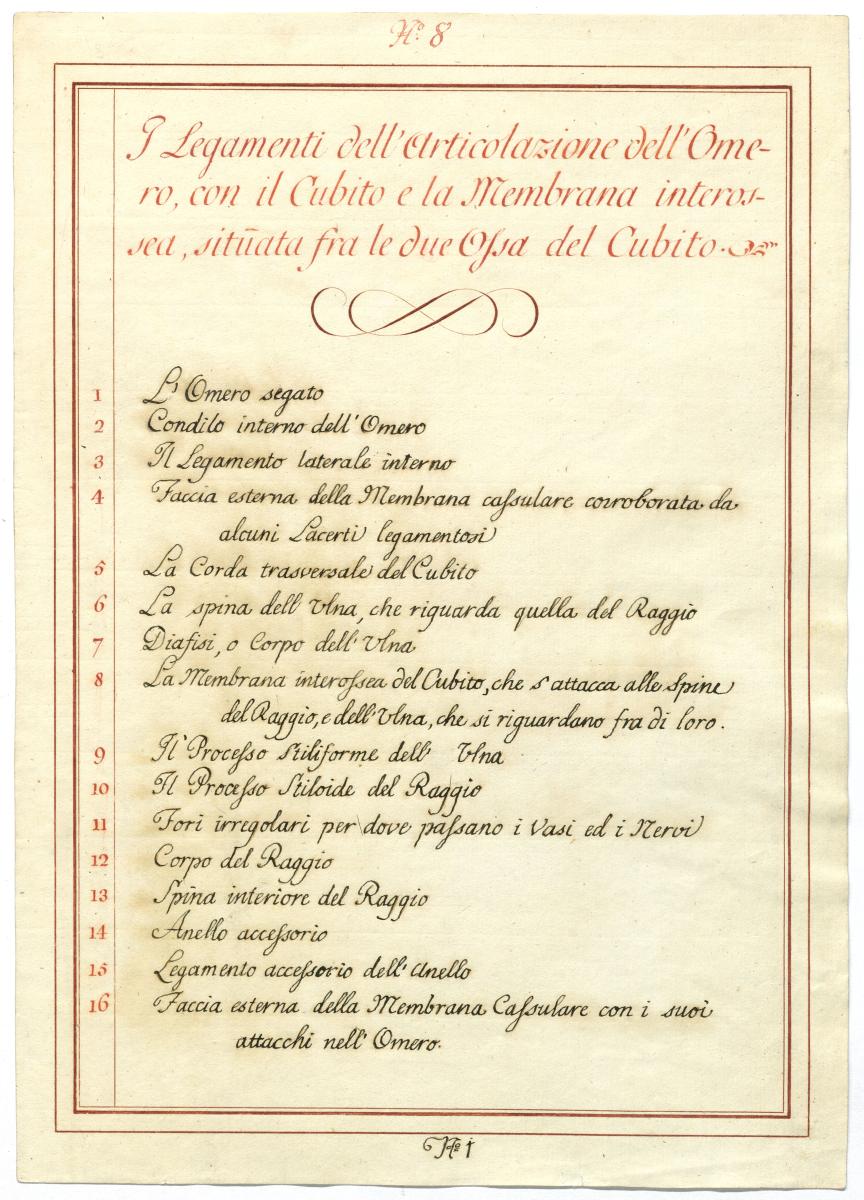 Nº 8
I Legamenti dell'Articolazione dell'Ome-
ro, con il Cubito e la Membrana interos-
sea, sitūata fra le due Oſsa del Cubito.
1 L'Omero segato
2 Condilo interno dell'Omero
3 Il Legamento laterale interno
4 Faccia esterna della Membrana caſsulare corroborata da
alcuni Lacerti legamentosi
5 La Corda trasversale del Cubito
6 La spina dell'Ulna, che riguarda quella del Raggio
7 Diafisi, o Corpo dell'Ulna
8 La Membrana interoſsea del Cubito, che s'attacca alle Spine
del Raggio, e dell'Ulna, che si riguardano fra di loro.
9 Il Proceſso Stiliforme dell' Ulna
10 Il Proceſso Stiloide del Raggio
11 Fori irregolari per dove paſsano i Vasi ed i Nervi
12 Corpo del Raggio
13 Spina interiore del Raggio
14 Anello acceſsorio
15 Legamento acceſsorio dell'Anello
16 Faccia esterna della Membrana Caſsulare con i suoi
attacchi nell'Omero.
Nº 1